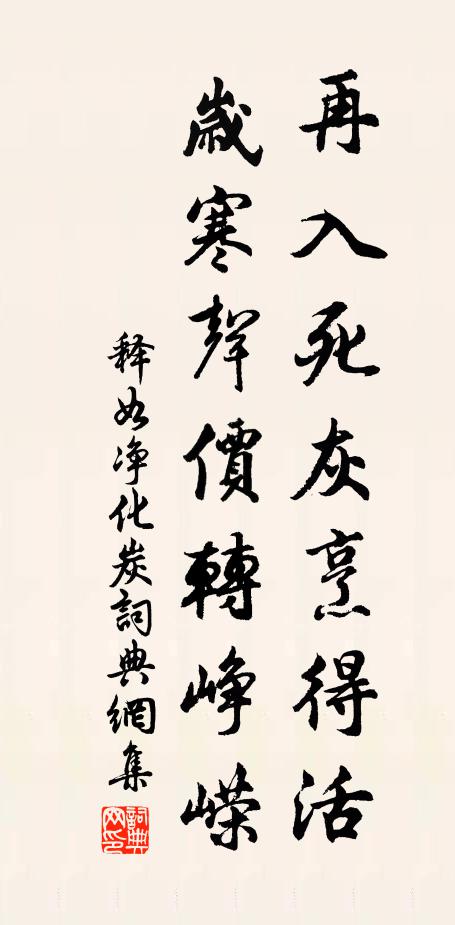 再入死灰烹得活
歲寒聲價轉崢嶸
釋如净化炭詞典網集
詞典網印